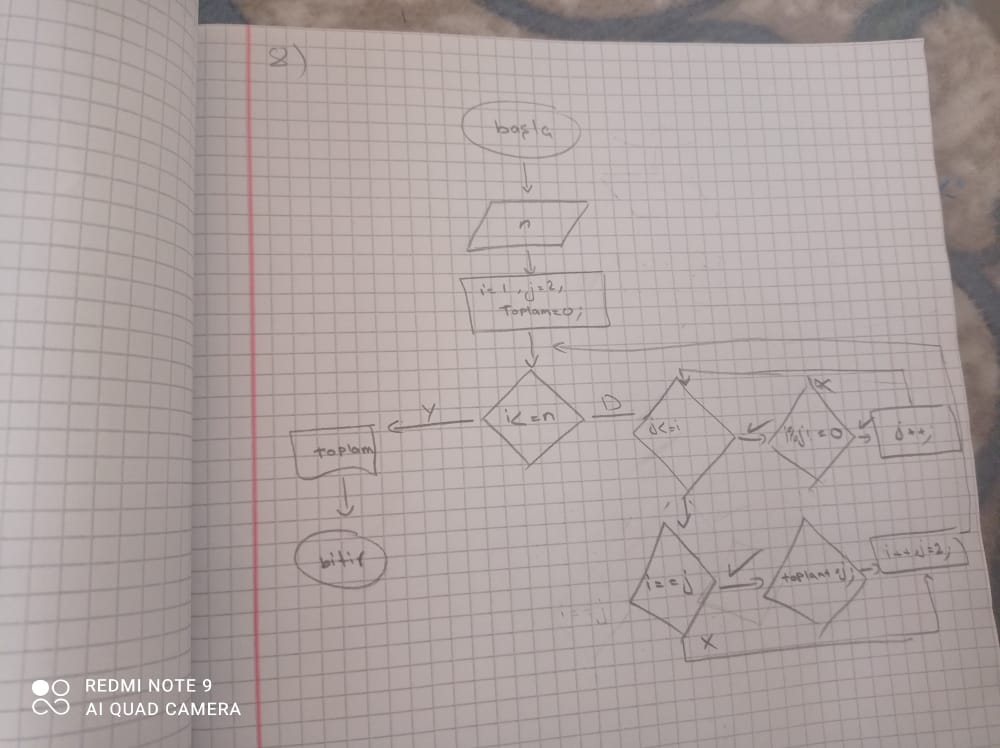 8)
başla
n
i=1, j=2,
Toplam=0;
i<=n
Y
D
j<=i
X
j++;
toplam
bitir
i==j
toplam+=j;
i++, j=2;
i==j
X
REDMI NOTE 9
AI QUAD CAMERA